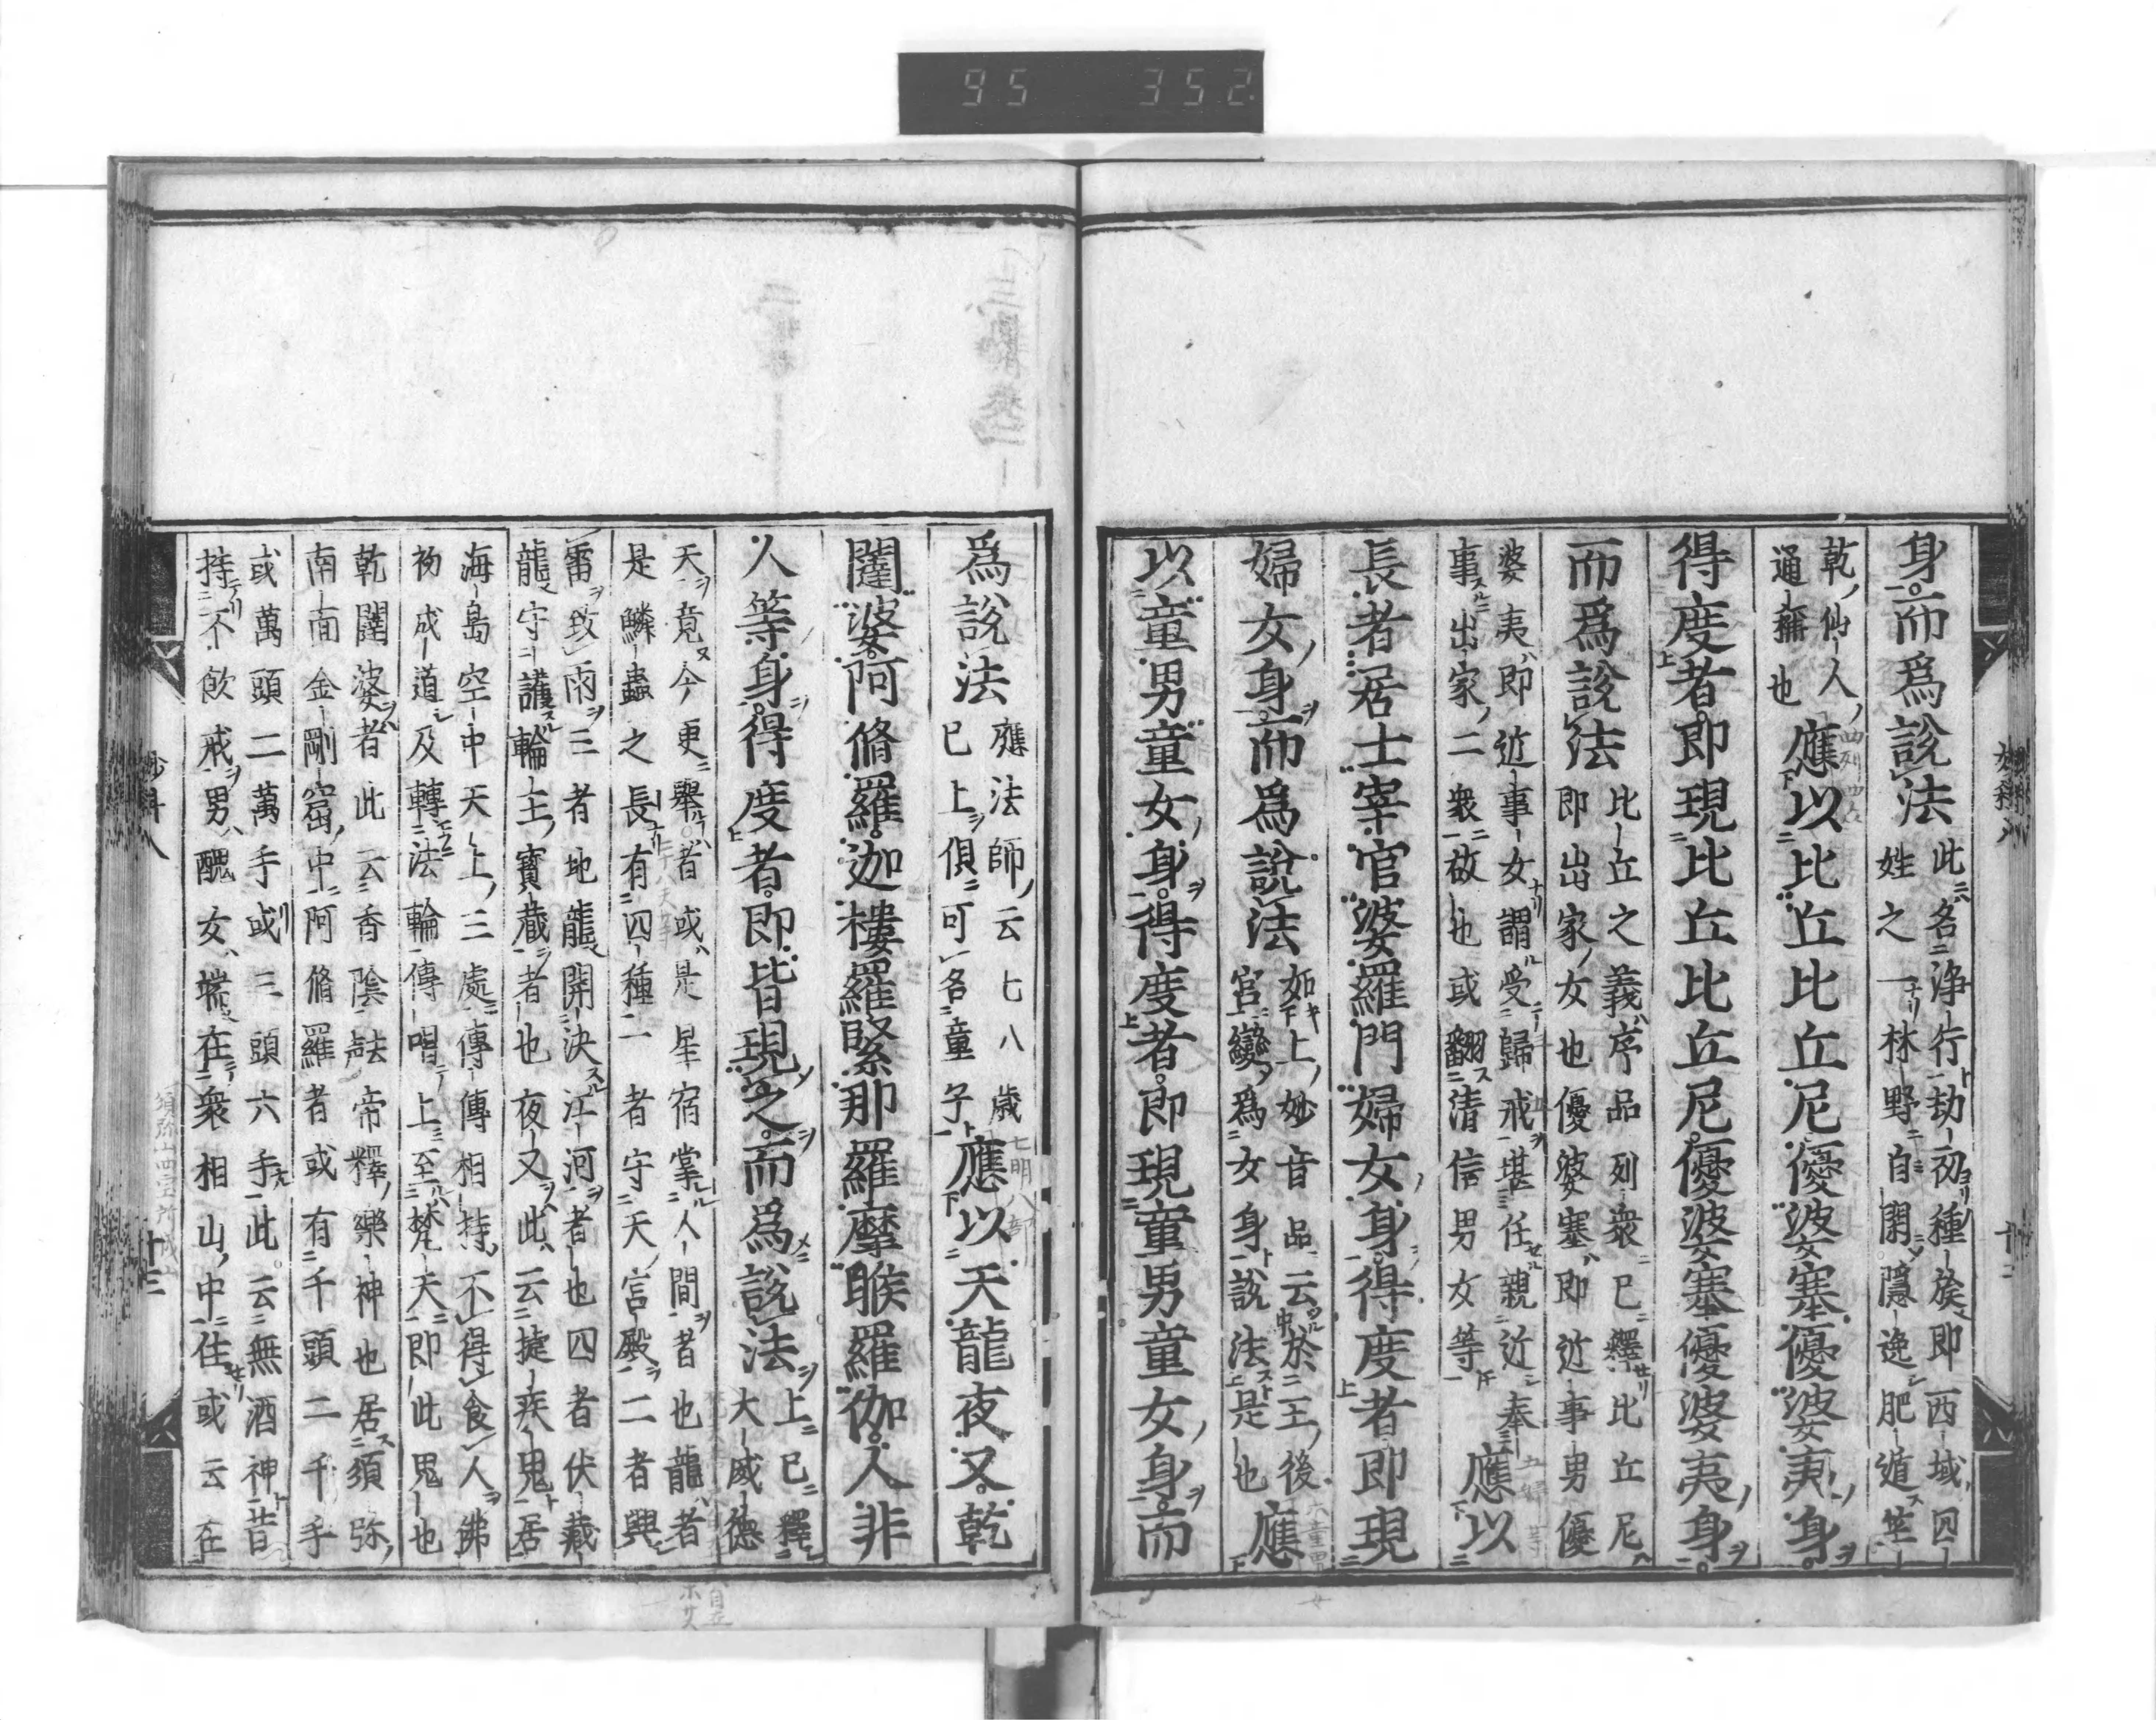 95 352
身而爲說法
此名淨行劫初種族即西域四
姓之一林野自閑隱逸肥遁竺
乾仙人
通稱也
應以比丘比丘尼優婆塞優婆夷身
得度者即現比丘比丘尼優婆塞優婆夷身
而爲說法
比丘之義序品列衆已釋比丘尼
即出家女也優婆塞即近事男優
婆夷即近事女謂受歸戒堪任親近奉
事出家二衆故也或翻清信男女等
應以
長者居士宰官婆羅門婦女身得度者即現
婦女身而爲說法
如上妙音品云於王後
宮變爲女身說法是也
應
以童男童女身得度者即現童男童女身而
爲說法
應法師云七八歲
已上俱可名童子
應以天龍夜叉乾
闥婆阿脩羅迦樓羅緊那羅摩睺羅伽人非
人等身得度者即皆現之而爲說法
上已釋
大威德
天竟今更舉者或是星宿掌人間者也龍者
是鱗蟲之長有四種一者守天宮殿二者興
雷致雨三者地龍開決江河者也四者伏藏
龍守護輪王寶藏者也夜叉此云捷疾鬼居
海島空中天上三處傳傳相持不得食人佛
初成道及轉法輪傳唱上至梵天即此鬼也
乾闥婆者此云香陰帝釋樂神也居須弥
南面金剛窟中阿脩羅者或有千頭二千手
或萬頭二萬手或三頭六手此云無酒神昔
持不飲戒男醜女端在衆相山中住或云在
妙科八
十三